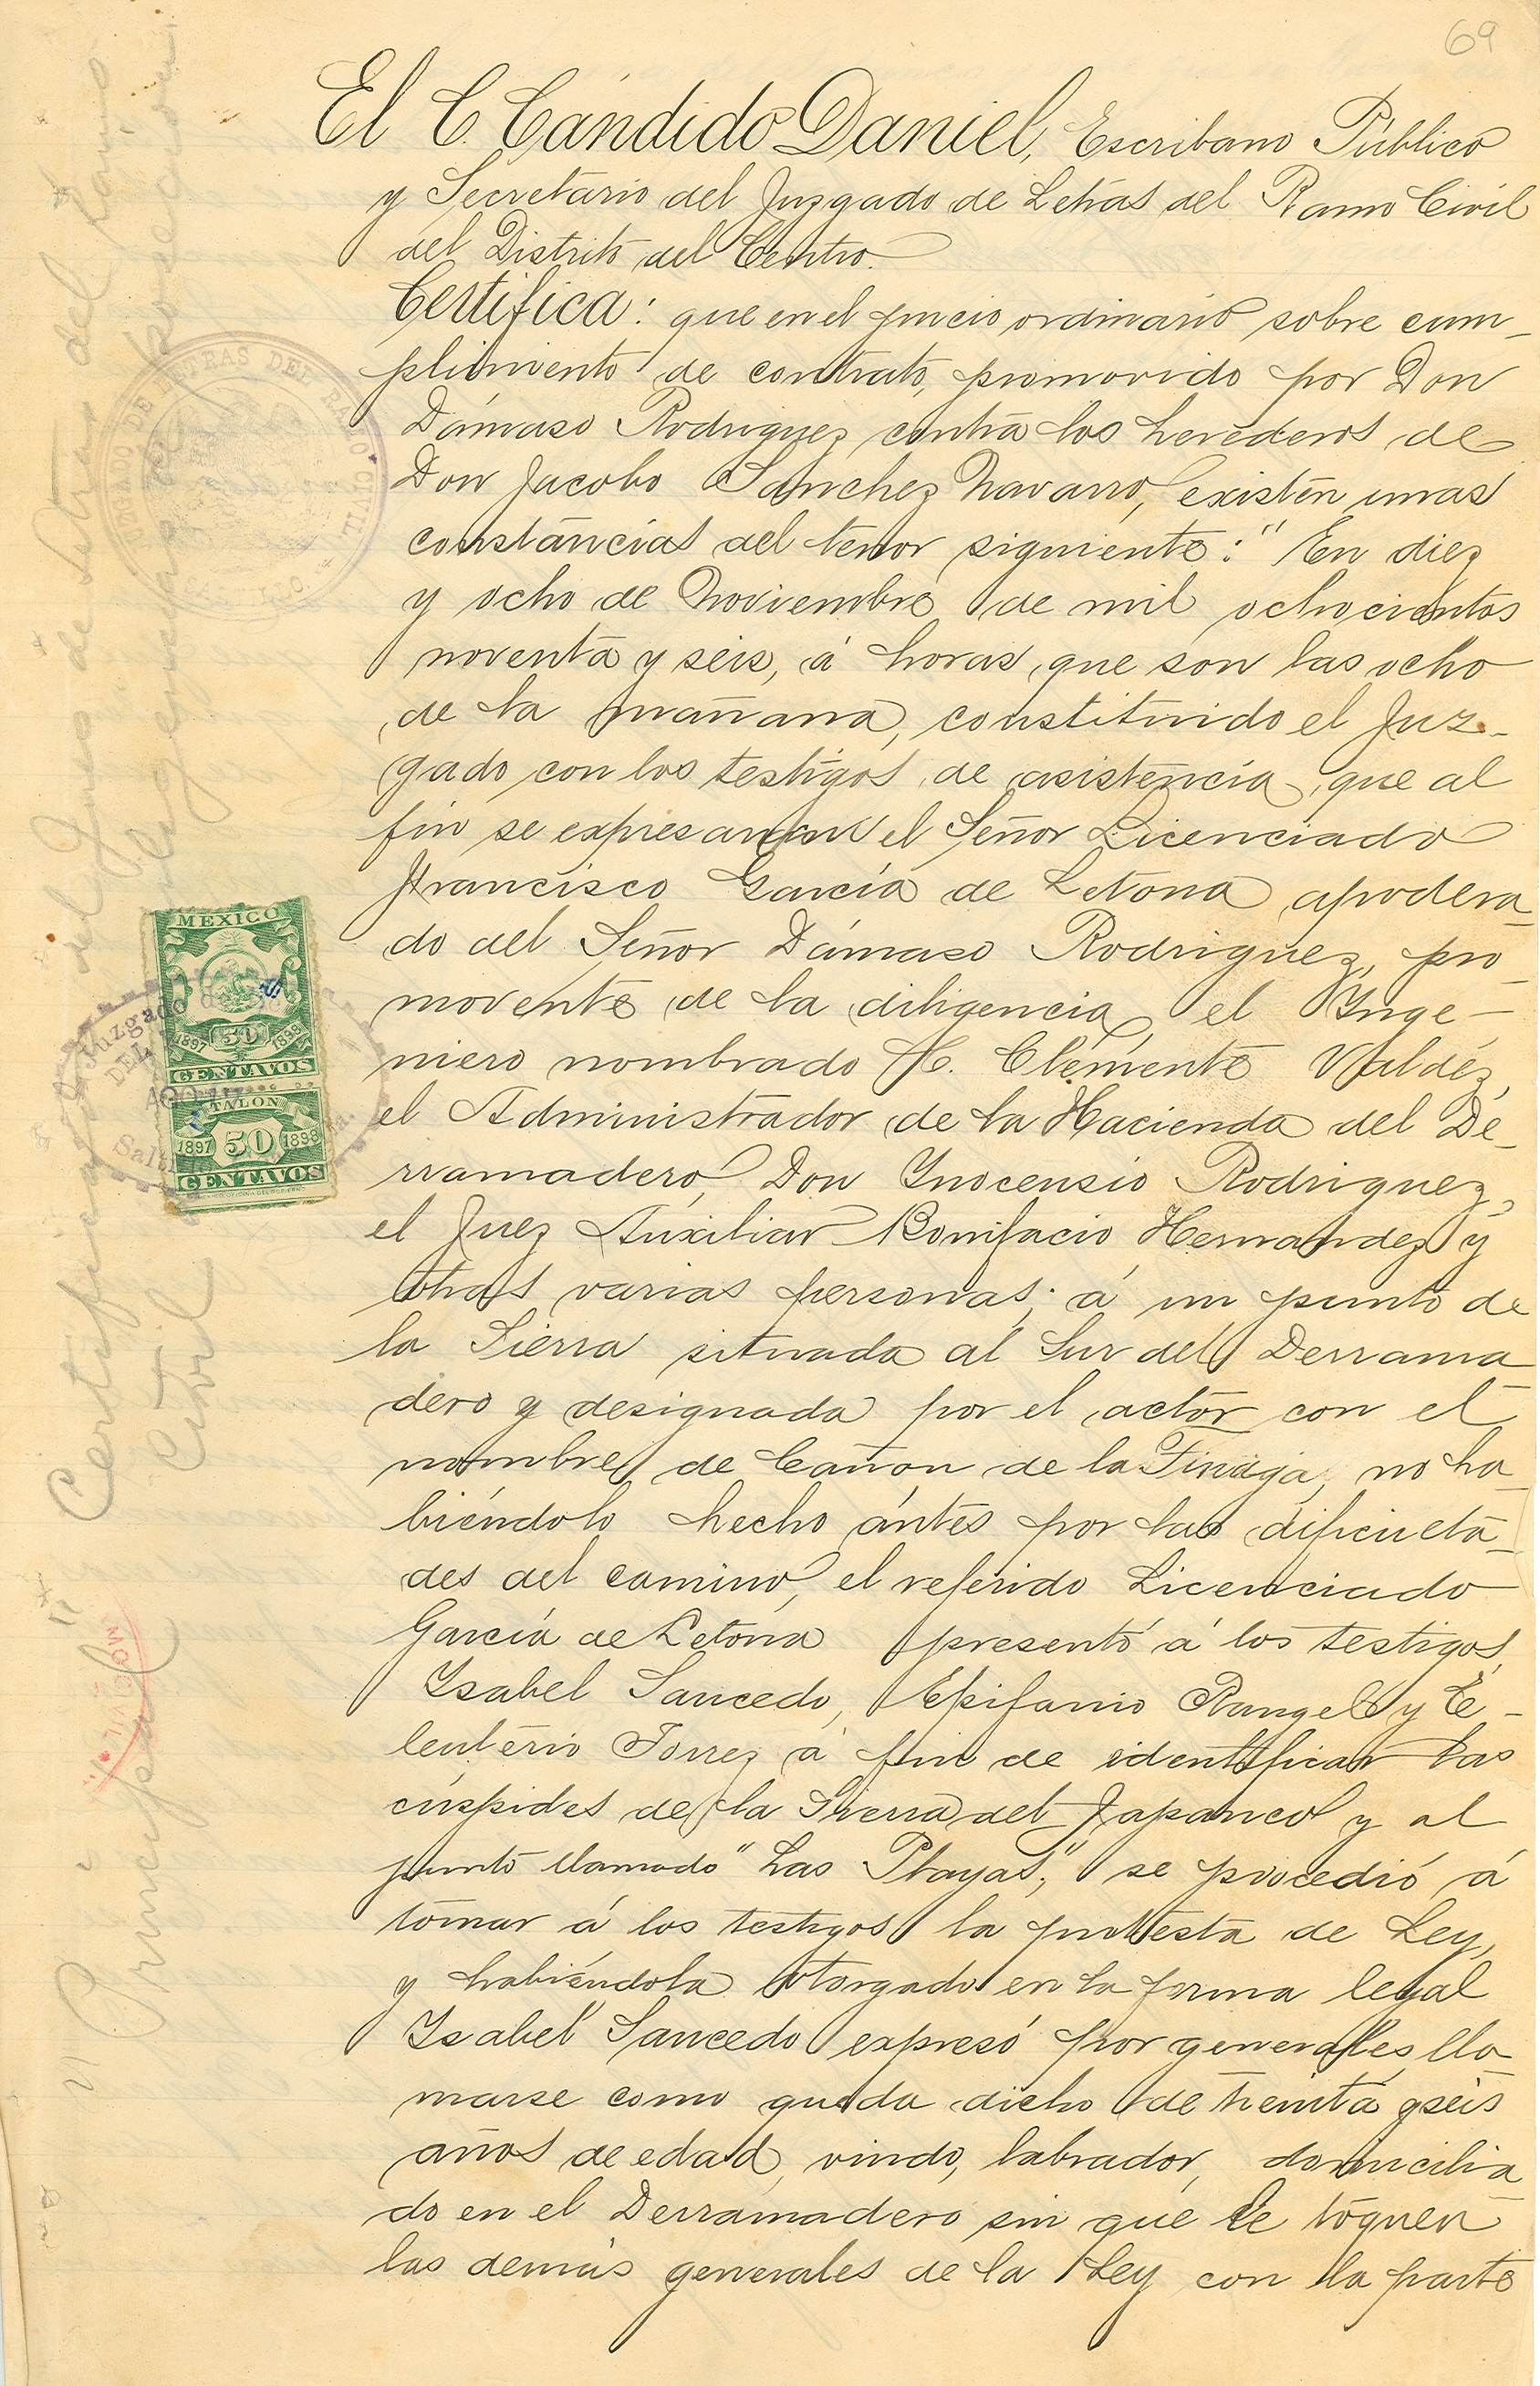 69
El C. Cándido Daniel, Escribano Público
y Secretario del Juzgado de Letras del Ramo Civil
del Distrito del Centro.
Certifica: que en el juicio ordinario sobre cum-
plimiento de contrato, promovido por Don
Dámaso Rodriguez contra los herederos de
Don Jacobo Sanchez Navarro, existen unas
constancias del tenor siguiente: "En diez
y ocho de Noviembre de mil ochocientos
noventa y seis, á horas que son las ocho
de la mañana, constituido el Juz-
gado con los testigos de asistencia, que al
fin se expresaran el Señor Licenciado
Francisco García de Letona apodera-
do del Señor Dámaso Rodriguez, pro-
movente de la diligencia, el Inge-
niero nombrado C. Clemente Valdéz,
el Administrador de la Hacienda del De-
rramadero, Don Inocensio Rodriguez,
el Juez Auxiliar Bonifacio Hernandez y
otras varias personas; á un punto de
la Sierra situada al Sur del Derrama
dero y designada por el actor con el
nombre de Cañon de la Tinaja, no ha-
biéndolo hecho ántes por las dificulta-
des del camino, el referido Licenciado
García de Letona presentó á los testigos
Isabel Saucedo, Epifanio Rangel y E-
leuterio Torrez á fin de identificar las
cúspides de la Sierra del Japanco y al
punto llamado "Las Playas;" se procedió á
tomar á los testigos la protesta de Ley,
y habiéndola otorgado en la forma legal
Isabel Saucedo expresó por generales lla-
marse como queda dicho de treinta y seis
años de edad, viudo, labrador, domicilia
do en el Derramadero sin que le toquen
las demás generales de la Ley con la parte
MEXICO
1897 50 1898
CENTAVOS
TALON
1897 50 1898
CENTAVOS
JUZGADO DE LETRAS DEL RAMO CIVIL
Juzgado
DEL
Salt
Certificacion del Juez de Letras del Ramo
Civil
Principal